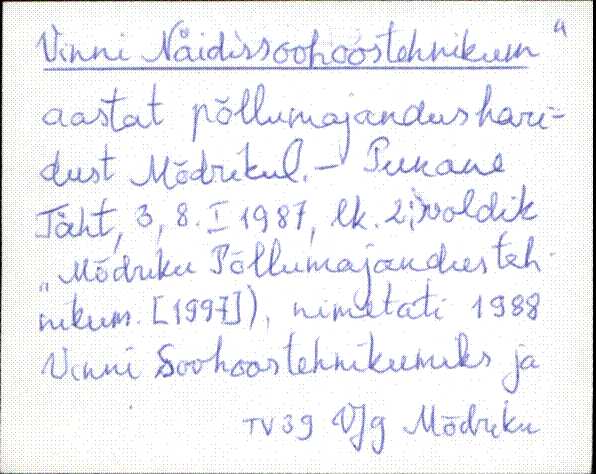 Vinni Näidissoohoostehnikum "
aastat põllumajandushari-
dust Mõdrikul. – Punane
Täht, 3, 8. I 1987, lk. 2; voldik
„Mõdriku Põllumajandusteh-
nikum. [1997]), nimetati 1988
Vinni Soohoostehnikumiks ja
TV39 Vjg Mõdriku